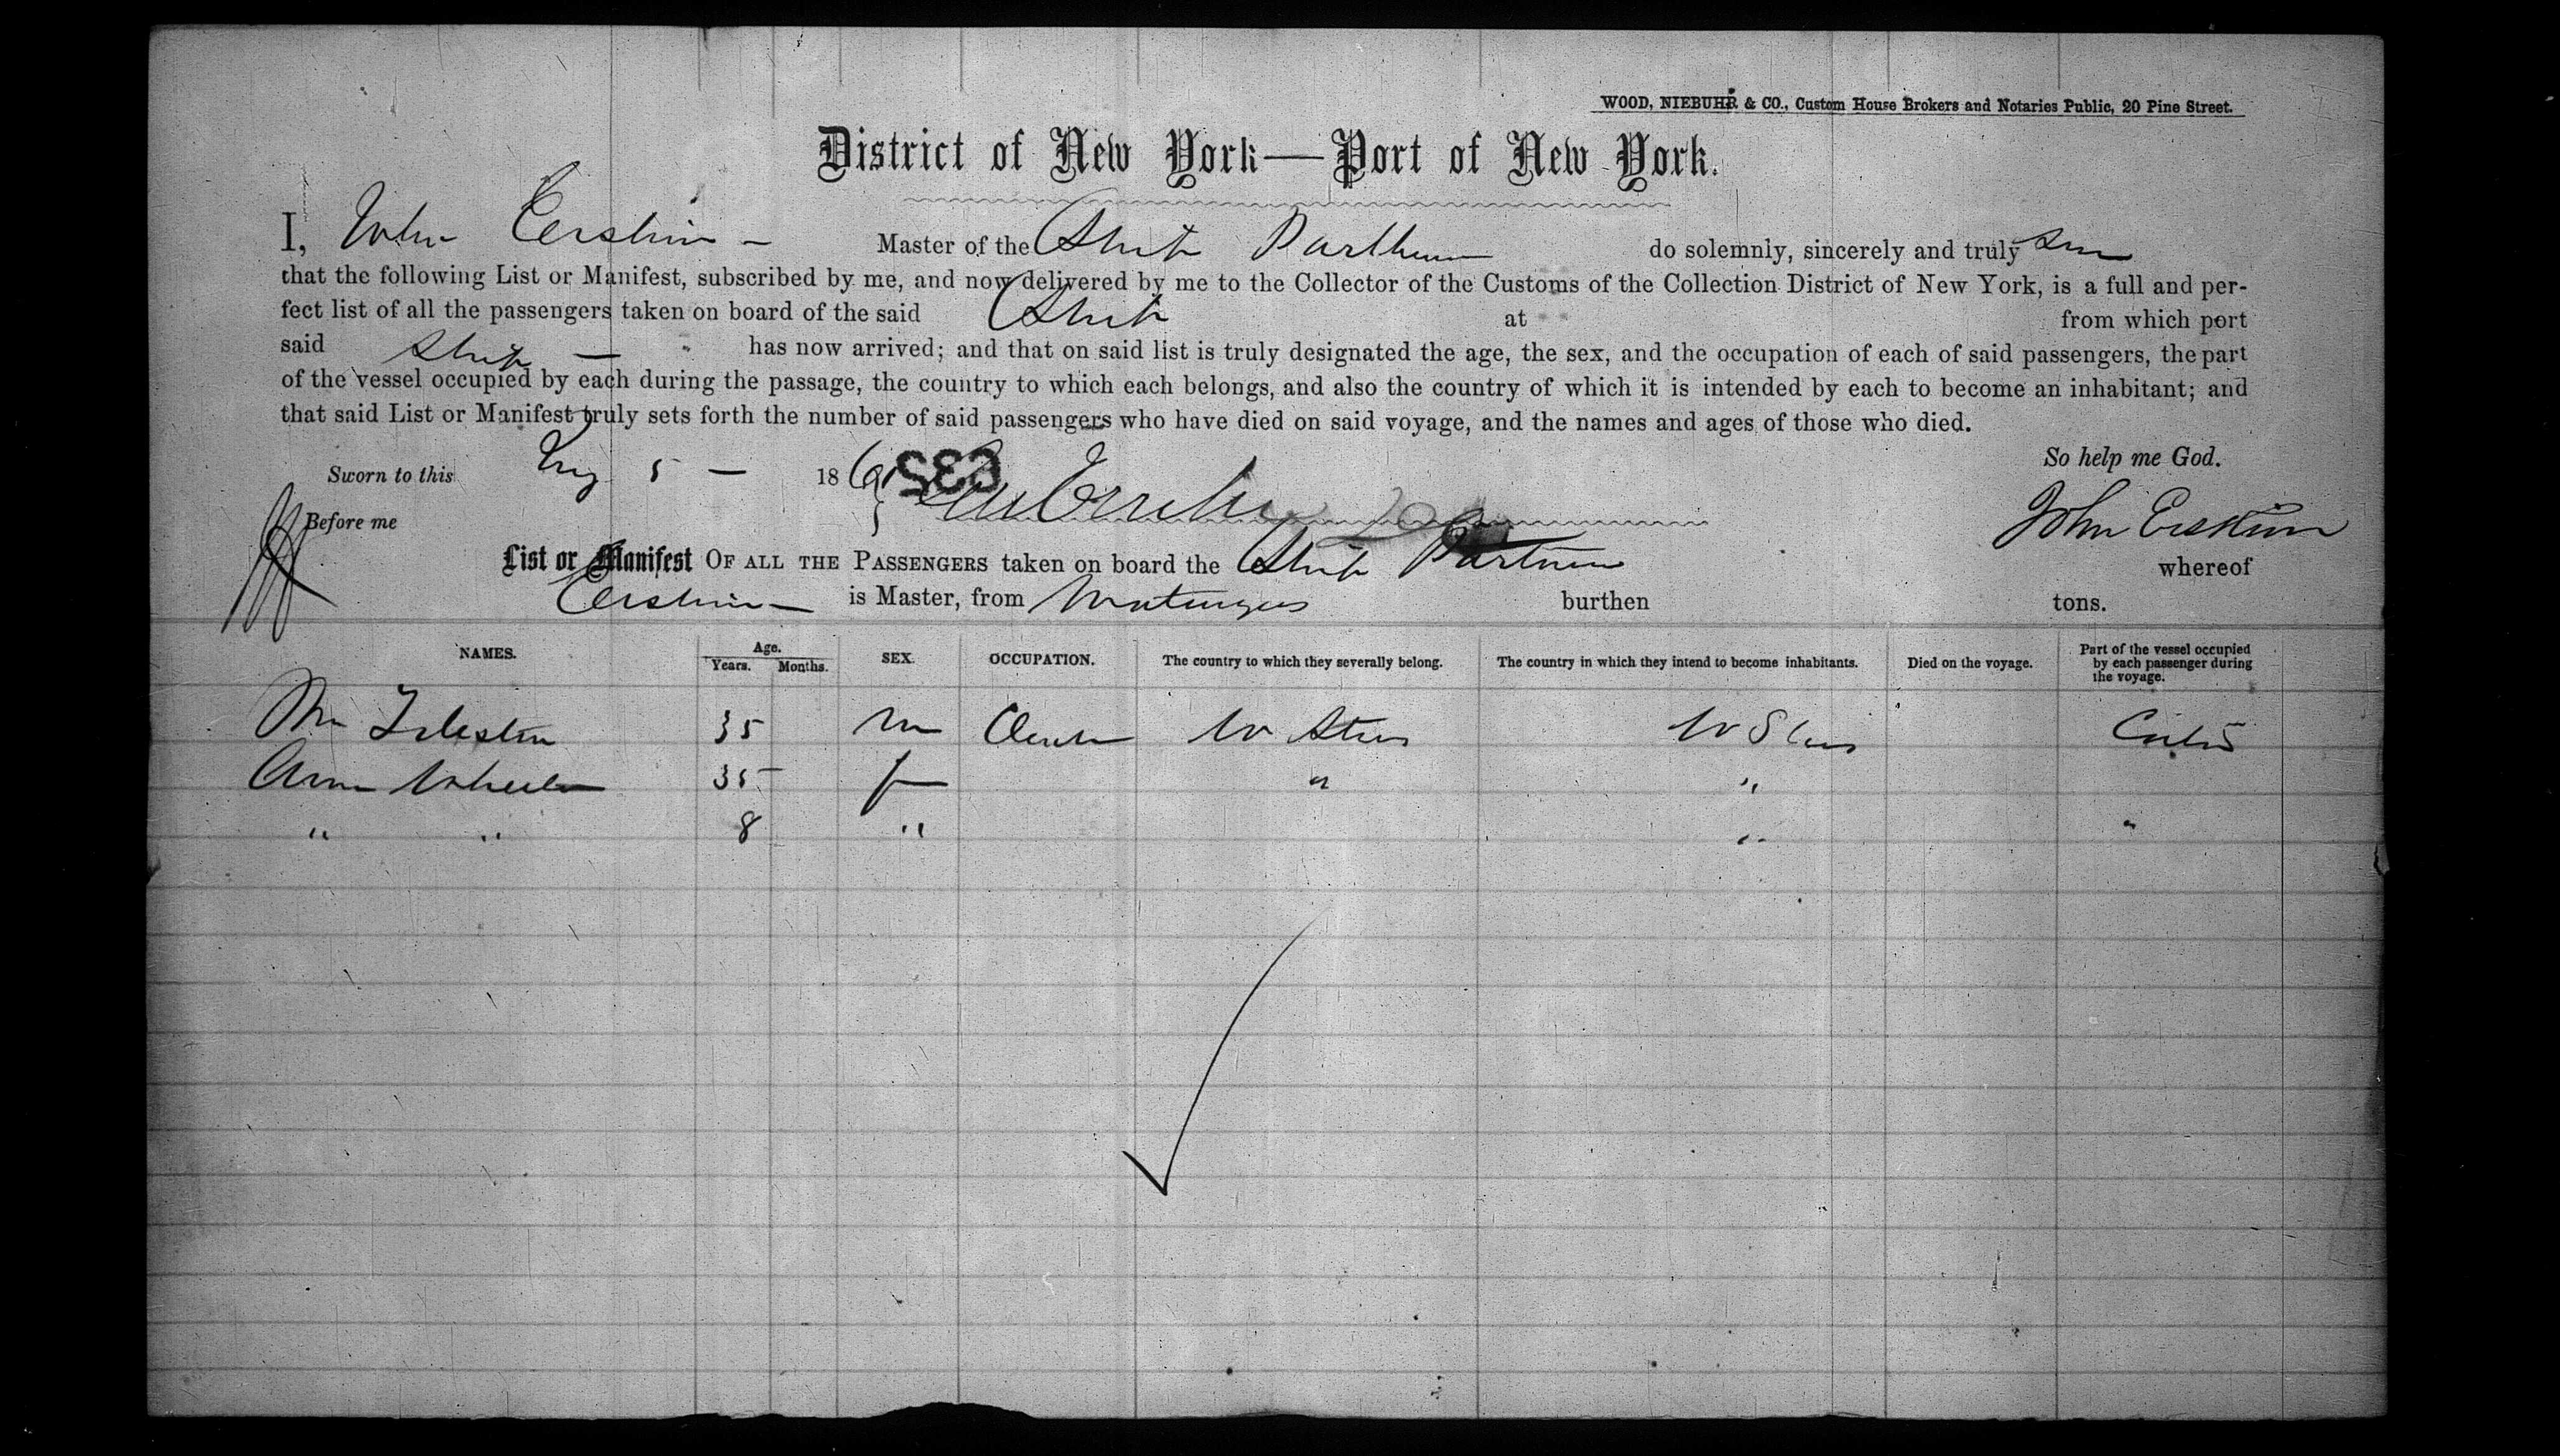 WOOD, NIEBUHR & CO., Custom House Brokers and Notaries Public, 20 Pine Street.
District of New York—Port of New York.
I, John Erskine – Master of the Ship do solemnly, sincerely and truly
that the following List or Manifest, subscribed by me, and now delivered by me to the Collector of the Customs of the Collection District of New York, is a full and per-
fect list of all the passengers taken on board of the said Ship at from which port
said Ship — has now arrived; and that on said list is truly designated the age, the sex, and the occupation of each of said passengers, the part
of the vessel occupied by each during the passage, the country to which each belongs, and also the country of which it is intended by each to become an inhabitant; and
that said List or Manifest truly sets forth the number of said passengers who have died on said voyage, and the names and ages of those who died.
So help me God.
Sworn to this Aug 5 — 186 632
John Erskine
Before me
List or Manifest OF ALL THE PASSENGERS taken on board the Ship whereof
Erskine — is Master, from burthen tons.
NAMES. Age. Years. Months. SEX. OCCUPATION. The country to which they severally belong. The country in which they intend to become inhabitants. Died on the voyage. Part of the vessel occupied by each passenger during the voyage.
35 m U States U States Cabin
Ann Wheeler 35 f " "
" " 8 " " "